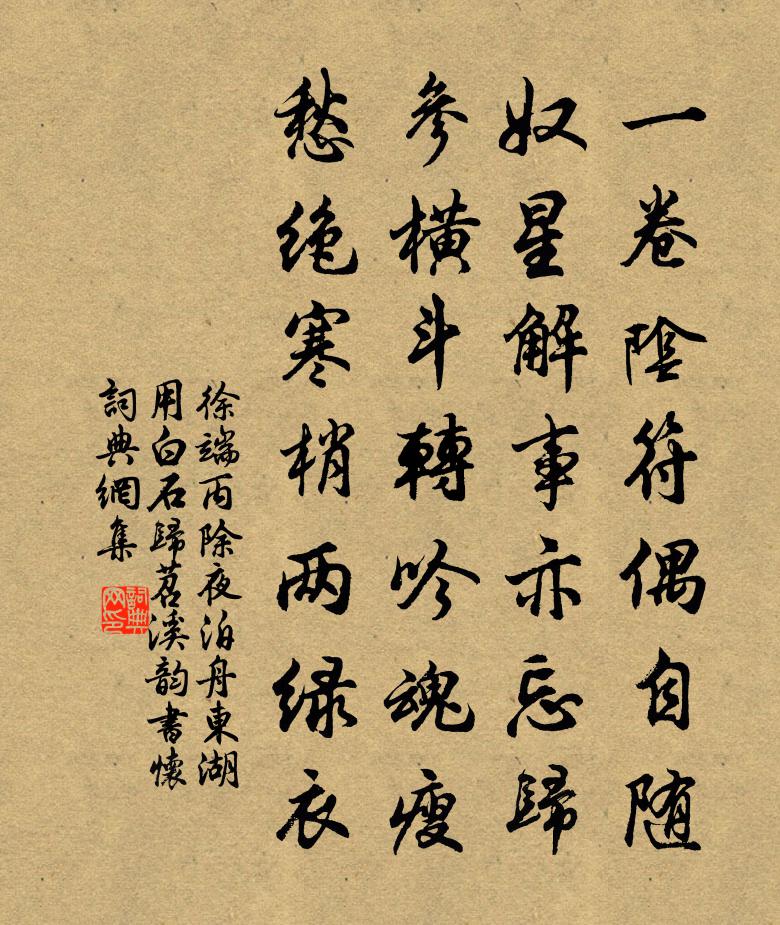 一卷陰符偶自随
奴星解事亦忘歸
參橫斗轉吟魂瘦
愁绝寒梢两绿衣
徐端丙除夜泊舟東湖
用白石歸苕溪韵書懷
詞典網集
詞典
网印